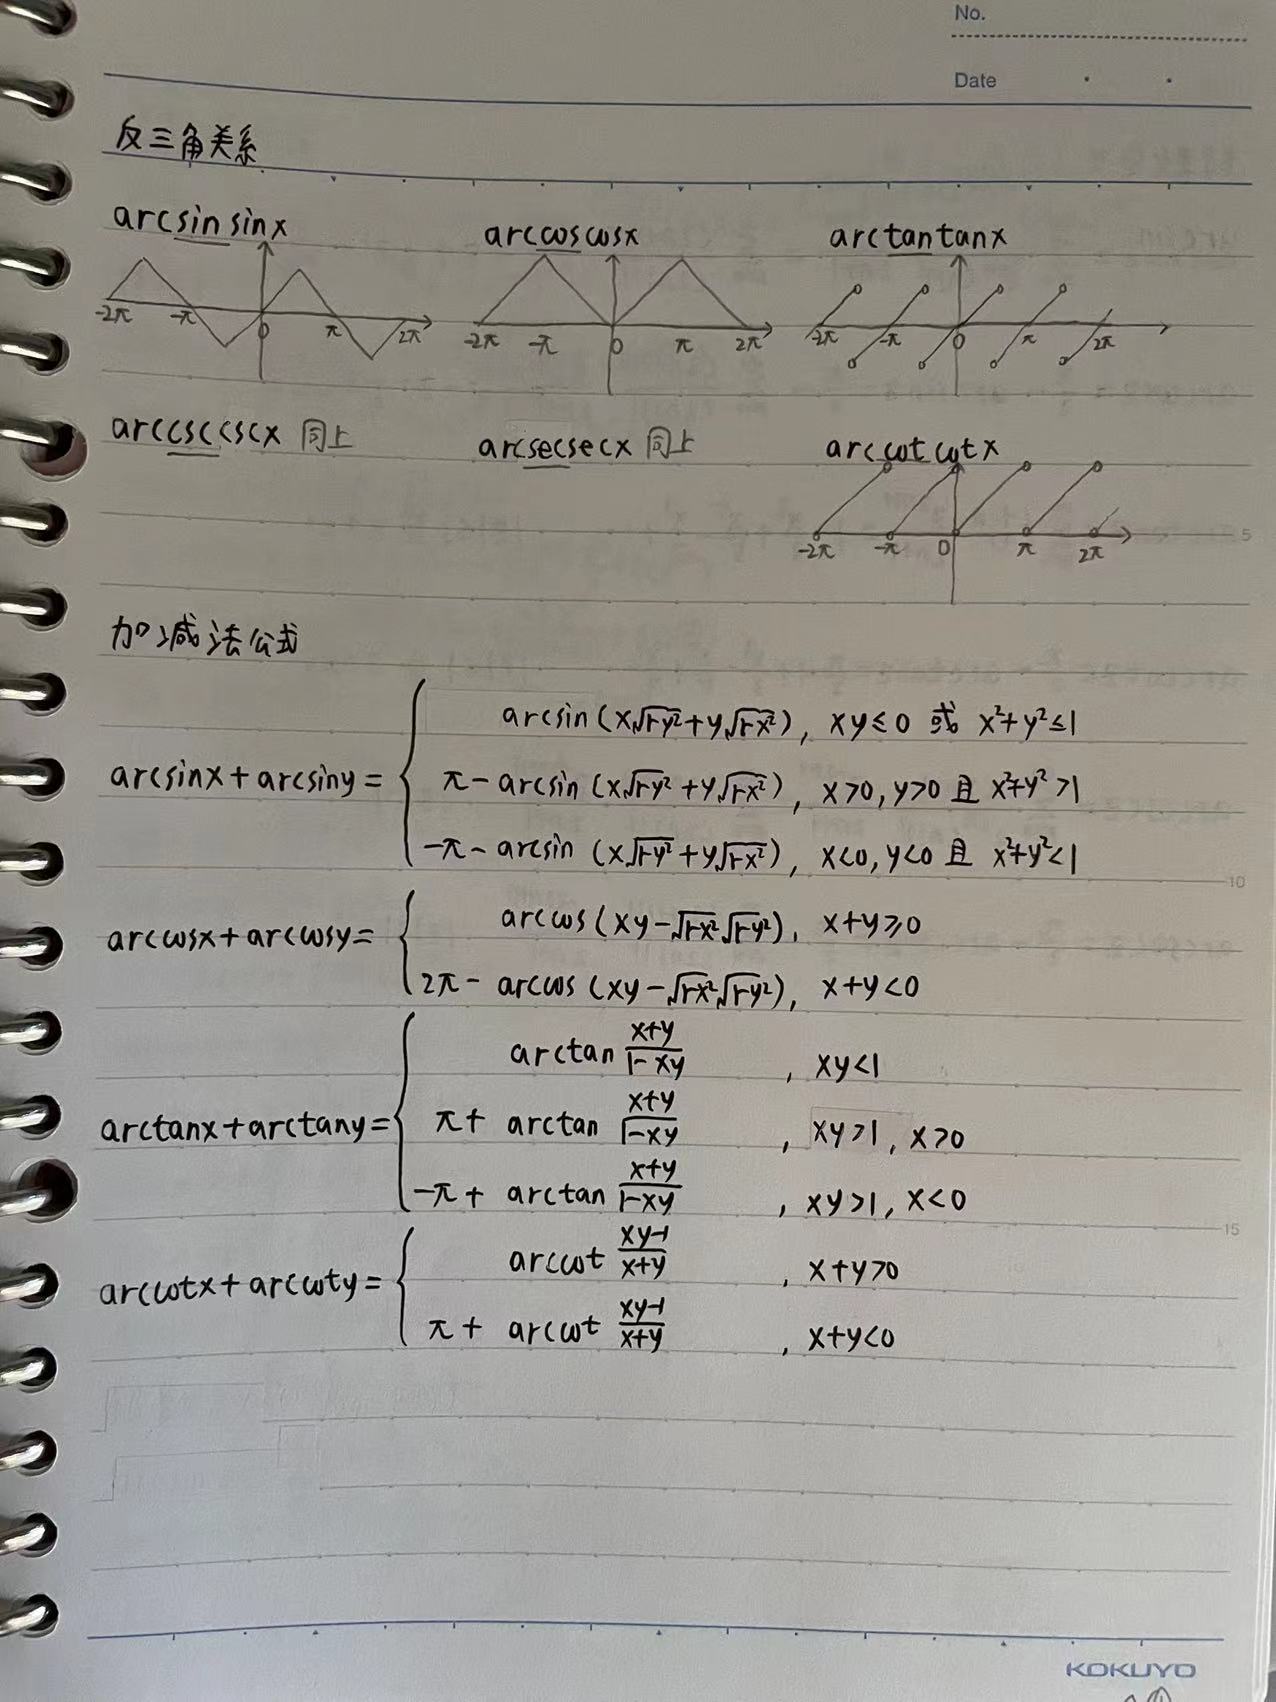 No.
Date
反三角关系
arcsin sinx
arccos cosx
arctan tanx
-2π -π 0 π 2π
-2π -π 0 π 2π
-2π -π 0 π 2π
arccsc cscx 同上
arcsec secx 同上
arccot cot x
-2π -π 0 π 2π
5
加减法公式
arcsinx + arcsiny = { arcsin (x√1-y² + y√1-x²), xy ≤ 0 或 x²+y² ≤ 1
π - arcsin (x√1-y² + y√1-x²), x>0, y>0 且 x²+y² > 1
-π - arcsin (x√1-y² + y√1-x²), x<0, y<0 且 x²+y² < 1
10
arccosx + arccosy = { arccos (xy - √1-x² √1-y²), x+y ≥ 0
2π - arccos (xy - √1-x² √1-y²), x+y < 0
arctanx + arctany = { arctan (x+y)/(1-xy), xy<1
π + arctan (x+y)/(1-xy), xy>1, x>0
-π + arctan (x+y)/(1-xy), xy>1, x<0
15
arccotx + arccoty = { arccot (xy-1)/(x+y), x+y>0
π + arccot (xy-1)/(x+y), x+y<0
KOKUYO